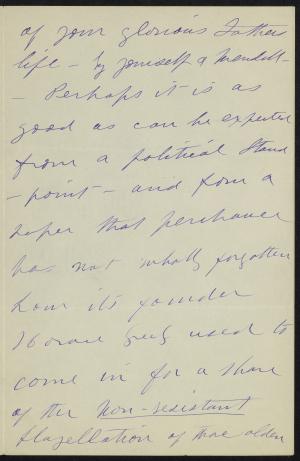 of your glorious Fathers
life - by yourself & Wendell -
- Perhaps it is as
good as can be expected
from a political Stand
- point - and from a
paper that perchance
has not wholly forgotten
how its founder
Horace Greely used to
come in for a share
of the Non-resistant
flagellation of those olden